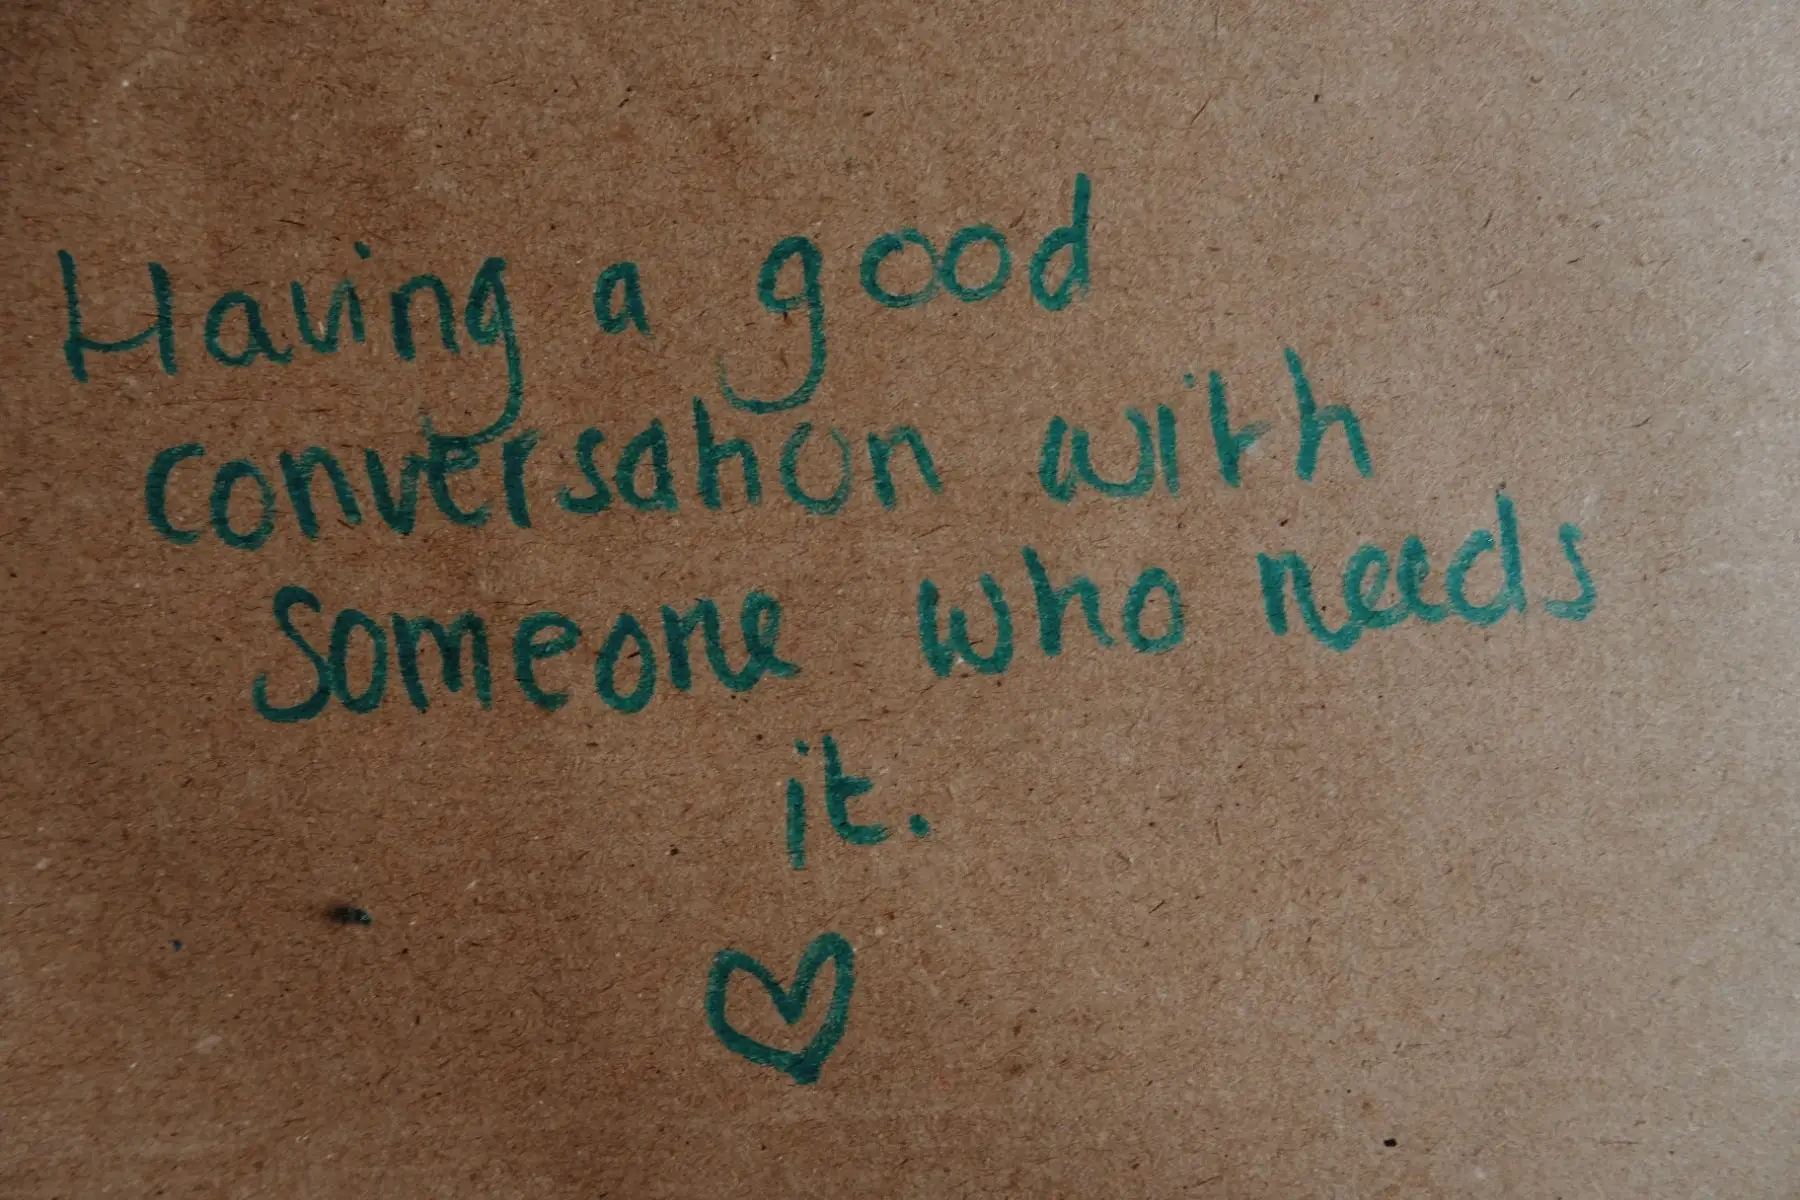 Having a good
conversation with
someone who needs
it.